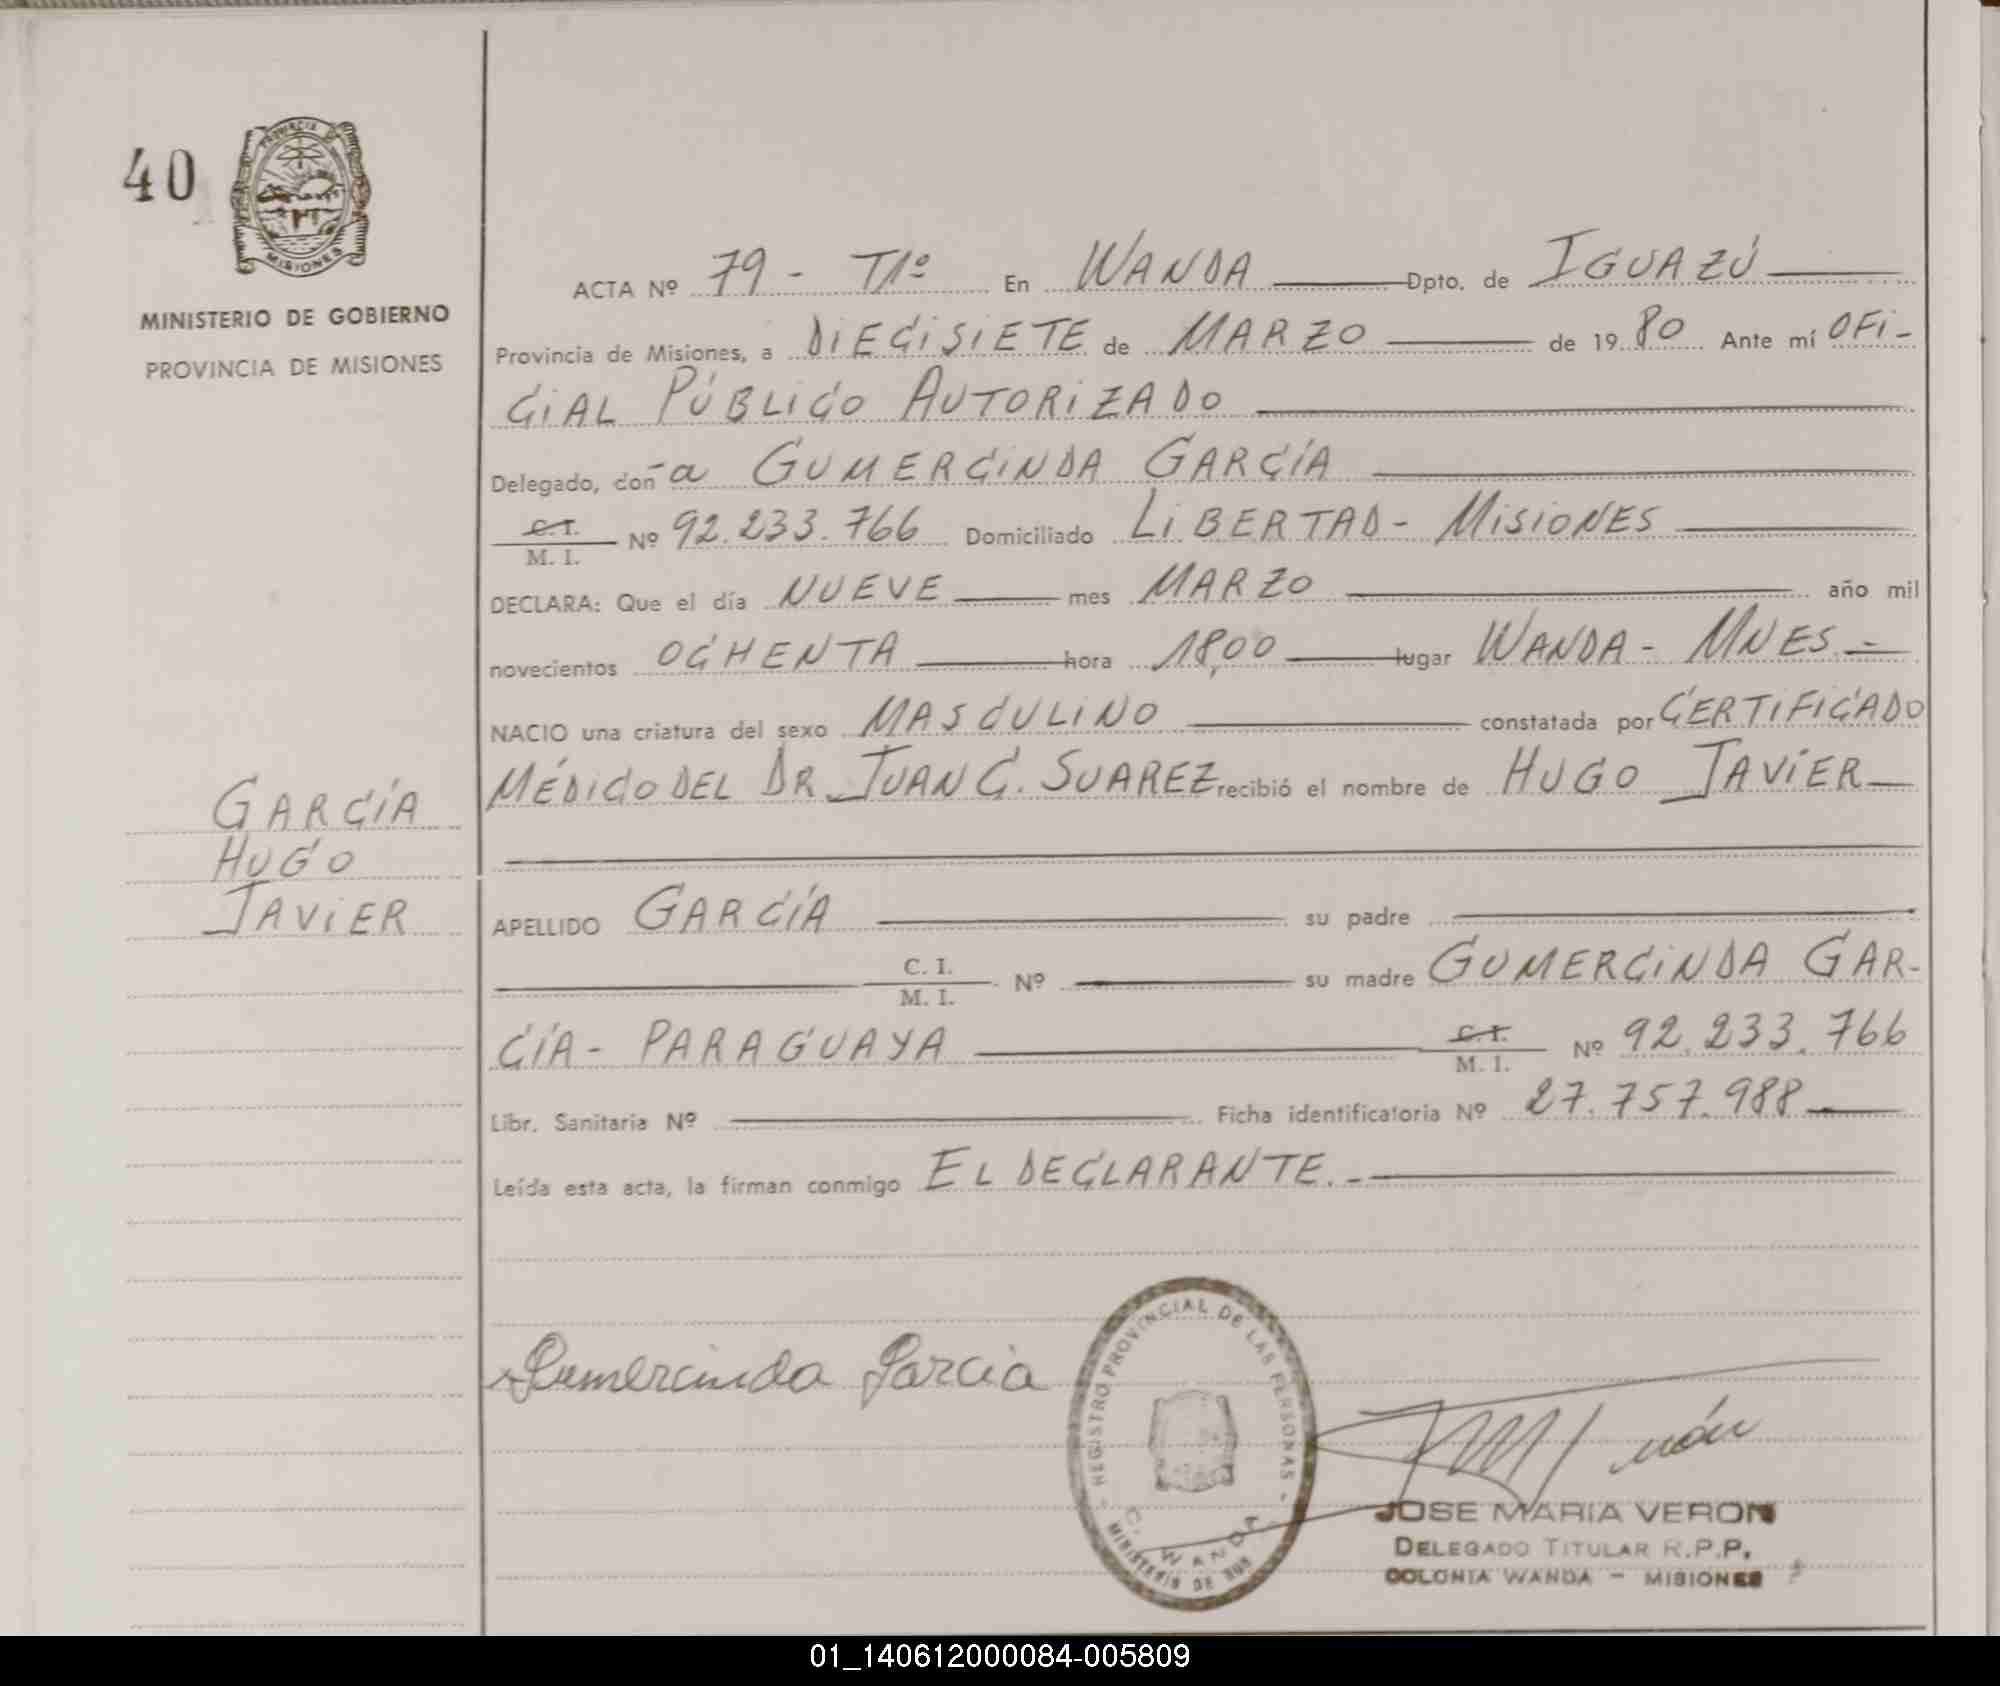 40
PROVINCIA DE
MISIONES
MINISTERIO DE GOBIERNO
PROVINCIA DE MISIONES
GARCÍA
HUGO
JAVIER
ACTA Nº 79 - T1º En WANDA Dpto. de IGUAZÚ
Provincia de Misiones, a DIECISIETE de MARZO de 1980 Ante mí OFI-
CIAL PÚBLICO AUTORIZADO
Delegado, doña GUMERCINDA GARCÍA
C. I.
M. I. Nº 92.233.766 Domiciliado LIBERTAD - MISIONES
DECLARA: Que el día NUEVE mes MARZO año mil
novecientos OCHENTA hora 18,00 lugar WANDA - MNES.-
NACIO una criatura del sexo MASCULINO constatada por CERTIFICADO
MÉDICO DEL DR. JUAN C. SUAREZ recibió el nombre de HUGO JAVIER
APELLIDO GARCÍA su padre
C. I.
M. I. Nº su madre GUMERCINDA GAR-
CÍA - PARAGUAYA C. I.
M. I. Nº 92.233.766
Libr. Sanitaria Nº Ficha identificatoria Nº 27.757.988
Leída esta acta, la firman conmigo EL DECLARANTE.-
Gumercinda Garcia
REGISTRO PROVINCIAL DE LAS PERSONAS
C. WANDA
MINISTERIO DE GOB
JOSE MARIA VERON
DELEGADO TITULAR R.P.P.
COLONIA WANDA - MISIONES
01_140612000084-005809